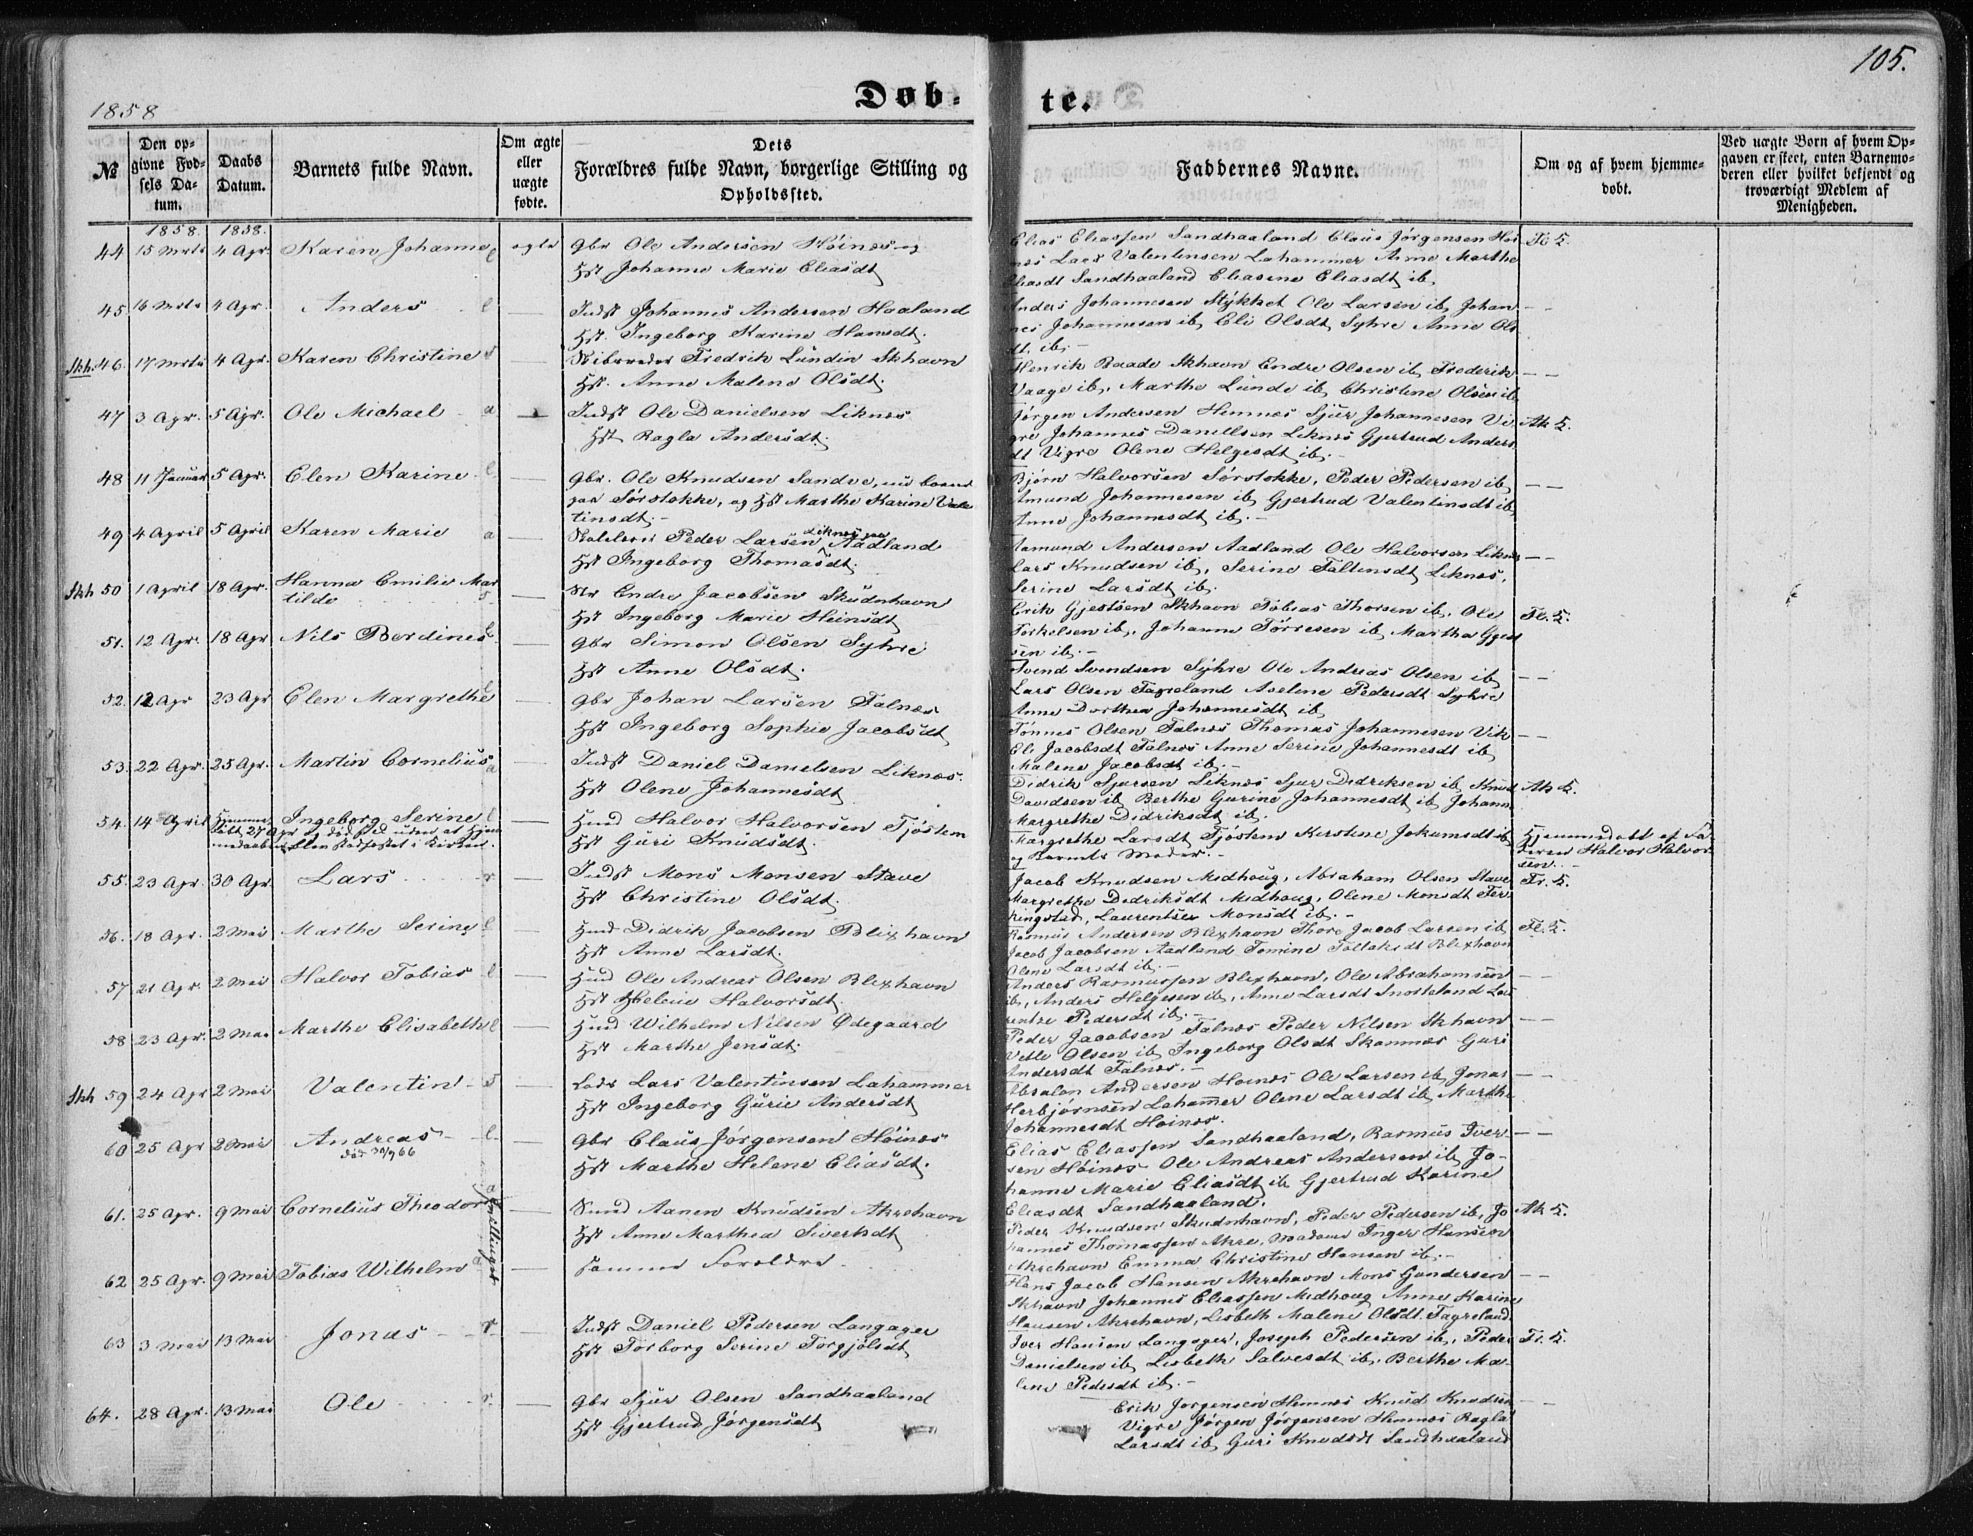 105.
1858
Døb-
te.
№
Den op-
givne Fød-
sels Da-
tum.
Daabs
Datum.
Barnets fulde Navn.
Om ægte
eller
uægte
fødte.
Dets
Forældres fulde Navn, borgerlige Stilling og
Opholdssted.
Faddernes Navne.
Om og af hvem hjemme-
døbt.
Ved uægte Børn af hvem Op-
gaven er skeet, enten Barnemo-
deren eller hvilket bekjendt og
troværdigt Medlem af
Menigheden.
1858. 1858.
44 15 Mrts 4 Apr. Karen Johanne ægte Gbr Ole Andersen Høines og
Hst Johanne Marie Eliasdt
Elias Eliassen Sandhaaland Claus Jørgensen Høi
nes Lars Valentinsen Lahammer Anne Marthe
Eliasdt Sandhaaland Eliasine Eliasdt ib.
45 16 Mrts 4 Apr. Anders l — Indst Johannes Andersen Haaland
Hst. Ingeborg Karine Hansdt.
Anders Johannesen Stykket Ole Larsen ib, Johan
nes Johannesen ib, Eli Olsdt, Syhre Anne Ols
dt. ib. — —
Skh. 46. 17 Mrts 4 Apr. Karen Christine s — Fredrik Lundin Skhavn
Hst. Anne Malene Olsdt.
Henrik Baade Skhavn Endre Olsen ib Frederik — —
Vaage ib, Marthe Lunde ib, Christine Olsen ib
47 3 Apr. 5 Apr. Ole Michael a Indst Ole Danielsen Liknes
Hst Ragla Andersdt.
Jørgen Andersen Hemnes Sjur Johannesen Vi
gre Johannes Daniellsen Liknes Gjertrud Anders
dt Vigre Olene Helgesdt ib. —
48 11 Januar 5 Apr. Elen Karine l — Gbr. Ole Knudsen Sandve, nu boende
paa Sørstokke, og Hst Marthe Karine Valen
tinsdt. —
Bjørn Halvorsen Sørstokke, Peder Pedersen ib, — —
Amund Johannesen ib, Gjertrud Valentinsdt ib,
Anne Johannesdt ib. —
49 4 April 5 April Karen Marie a — Skolelærer Peder Larsen Liknes paa Aadland
Hst Ingeborg Thomasdt.
Aamund Andersen Aadland Ole Halvorsen Liknes — —
Lars Knudsen ib, Serine Faltinsdt Liknes,
Serine Larsdt ib.
Skh 50 1 April 18 Apr. Hanna Emilie Mar
tilde s — Endre Jacobsen Skudnhavn
Hst Ingeborg Marie Heinsdt
Erik Gjestsen Skhavn Tobias Thorsen ib, Ole
Torkelsen ib, Johanne Tørresen ib, Martha Gjest
sen ib. —
51. 12 Apr. 18 Apr Nils Berdines l — Gbr Simon Olsen Syhre
Hst Anne Olsdt.
Svend Svendsen Syhre Ole Andreas Olsen ib — —
Lars Olsen Fagreland Axeline Pedersdt Syhre
Anne Dorthea Johannesdt ib,
52. 12 Apr 23 Apr Elen Margrethe l — Gbr Johan Larsen Falnes
Hst Ingeborg Sophie Jacobsdt
Tønnes Olsen Falnes Thomas Johannesen Vik — —
Eli Jacobsdt Falnes Anne Serine Johannesdt ib,
Malene Jacobsdt ib. —
53. 22 Apr. 25 Apr. Martin Cornelius a — Indst Daniel Danielsen Liknes.
Hst Olene Johannesdt
Didrik Sjursen Liknes Sjur Didriksen ib, Knud
Davidsen ib Berthe Gurine Johannesdt ib, Johanne
Margrethe Didriksdt ib.
54. 14 April Ingeborg Serine l — Hmd Halvor Halvorsen Tjøstem
Hst Guri Knudsdt.
Margrethe Larsdt Tjøstem Kirstine Johannesdt ib
og Barnets Moder. —
Hjemmedøbt af Fa
deren Halvor Halvor
sen. —
55. 23 Apr. 30 Apr. Lars r — Indst Mons Monsen Stave
Hst Christine Olsdt.
Jacob Knudsen Medhoug, Abraham Olsen Stave
Margrethe Didriksdt Medhoug, Olene Monsdt Fer
kingstad, Laurentse Monsdt ib. —
56. 18 Apr. 2 Mai Marthe Serine l — Hmd Didrik Jacobsen Blixhavn
Hst Anne Larsdt.
Rasmus Andersen Blixhavn Thore Jacob Larsen ib,
Jacob Jacobsen Aadland Tomine Tollaksdt Blixhavn
Olene Larsdt ib. —
57 21 Apr. 2 Mai Halvor Tobias l — Hmd Ole Andreas Olsen Blixhavn
Hst Helene Halvorsdt.
Anders Rasmussen Blixhavn, Ole Abrahamsen — —
ib, Anders Helgesen ib, Anne Larsdt Snorteland Lau
rentze Pedersdt ib. —
58 23 Apr. 2 Mai Marthe Elisabeth l — Hmd Wilhelm Nilsen Ødegaard
Hst Marthe Jensdt.
Peder Jacobsen Falnes Peder Nilsen Skhavn — —
Vetle Olsen ib, Ingeborg Olsdt Skannes Guri
Andersdt Falnes. —
Skh 59 24 Apr 2 Mai Valentin s — Lods Lars Valentinsen Lahammer
Hst Ingeborg Gurie Andersdt
Absalon Andersen Høines Ole Larsen ib, Jonas — —
Herbjørnsen Lahammer Olene Larsdt ib, Marthe
Johannesdt Høines.
60 25 Apr 2 Mai Andreas l — Gbr Claus Jørgensen Høines
Hst Marthe Helene Eliasdt.
Elias Eliassen Sandhaaland, Rasmus Iver- — —
sen Høines Ole Andreas Andersen ib, Jo-
hanne Marie Eliasdt ib, Gjertrud Karine
Eliasdt Sandhaaland.
61. 25 Apr. 9 Mai Cornelius Theodor a Tvillinger — Aanen Knudsen Akrehavn
Hst Anne Marthea Sivertsdt
Peder Knudsen Skudnhavn, Peder Pedersen ib, Jo
hannes Thomassen Akre, Madame Inger Hansen
Akrehavn Emma Christine Hansen ib. —
62 25 Apr. 9 Mai Tobias Wilhelm a — samme Forældre
Hans Jacob Hansen Akrehavn Mons Gundersen — —
Skhavn Johannes Eliassen Medhoug Anne Karine
Hansen Akrehavn, Lisbeth Malene Olsdt. Fagreland.
63 3 Mai 13 Mai Jonas r — Indst Daniel Pedersen Langager
Hst Torborg Serine Torgjølsdt
Iver Hansen Langager, Joseph Pedersen ib, Peder
Danielsen ib, Lisbeth Salvesdt ib, Berthe Ma-
lene Pedersdt ib. —
64. 28 Apr. 13 Mai Ole r — Gbr Sjur Olsen Sandhaaland
Hst Gjertrud Jørgensdt
Erik Jørgensen Hemnes Knud Knudsen — —
Vigre Jørgen Jørgensen Hemnes Ragla
Larsdt ib, Guri Knudsdt Sandhaaland